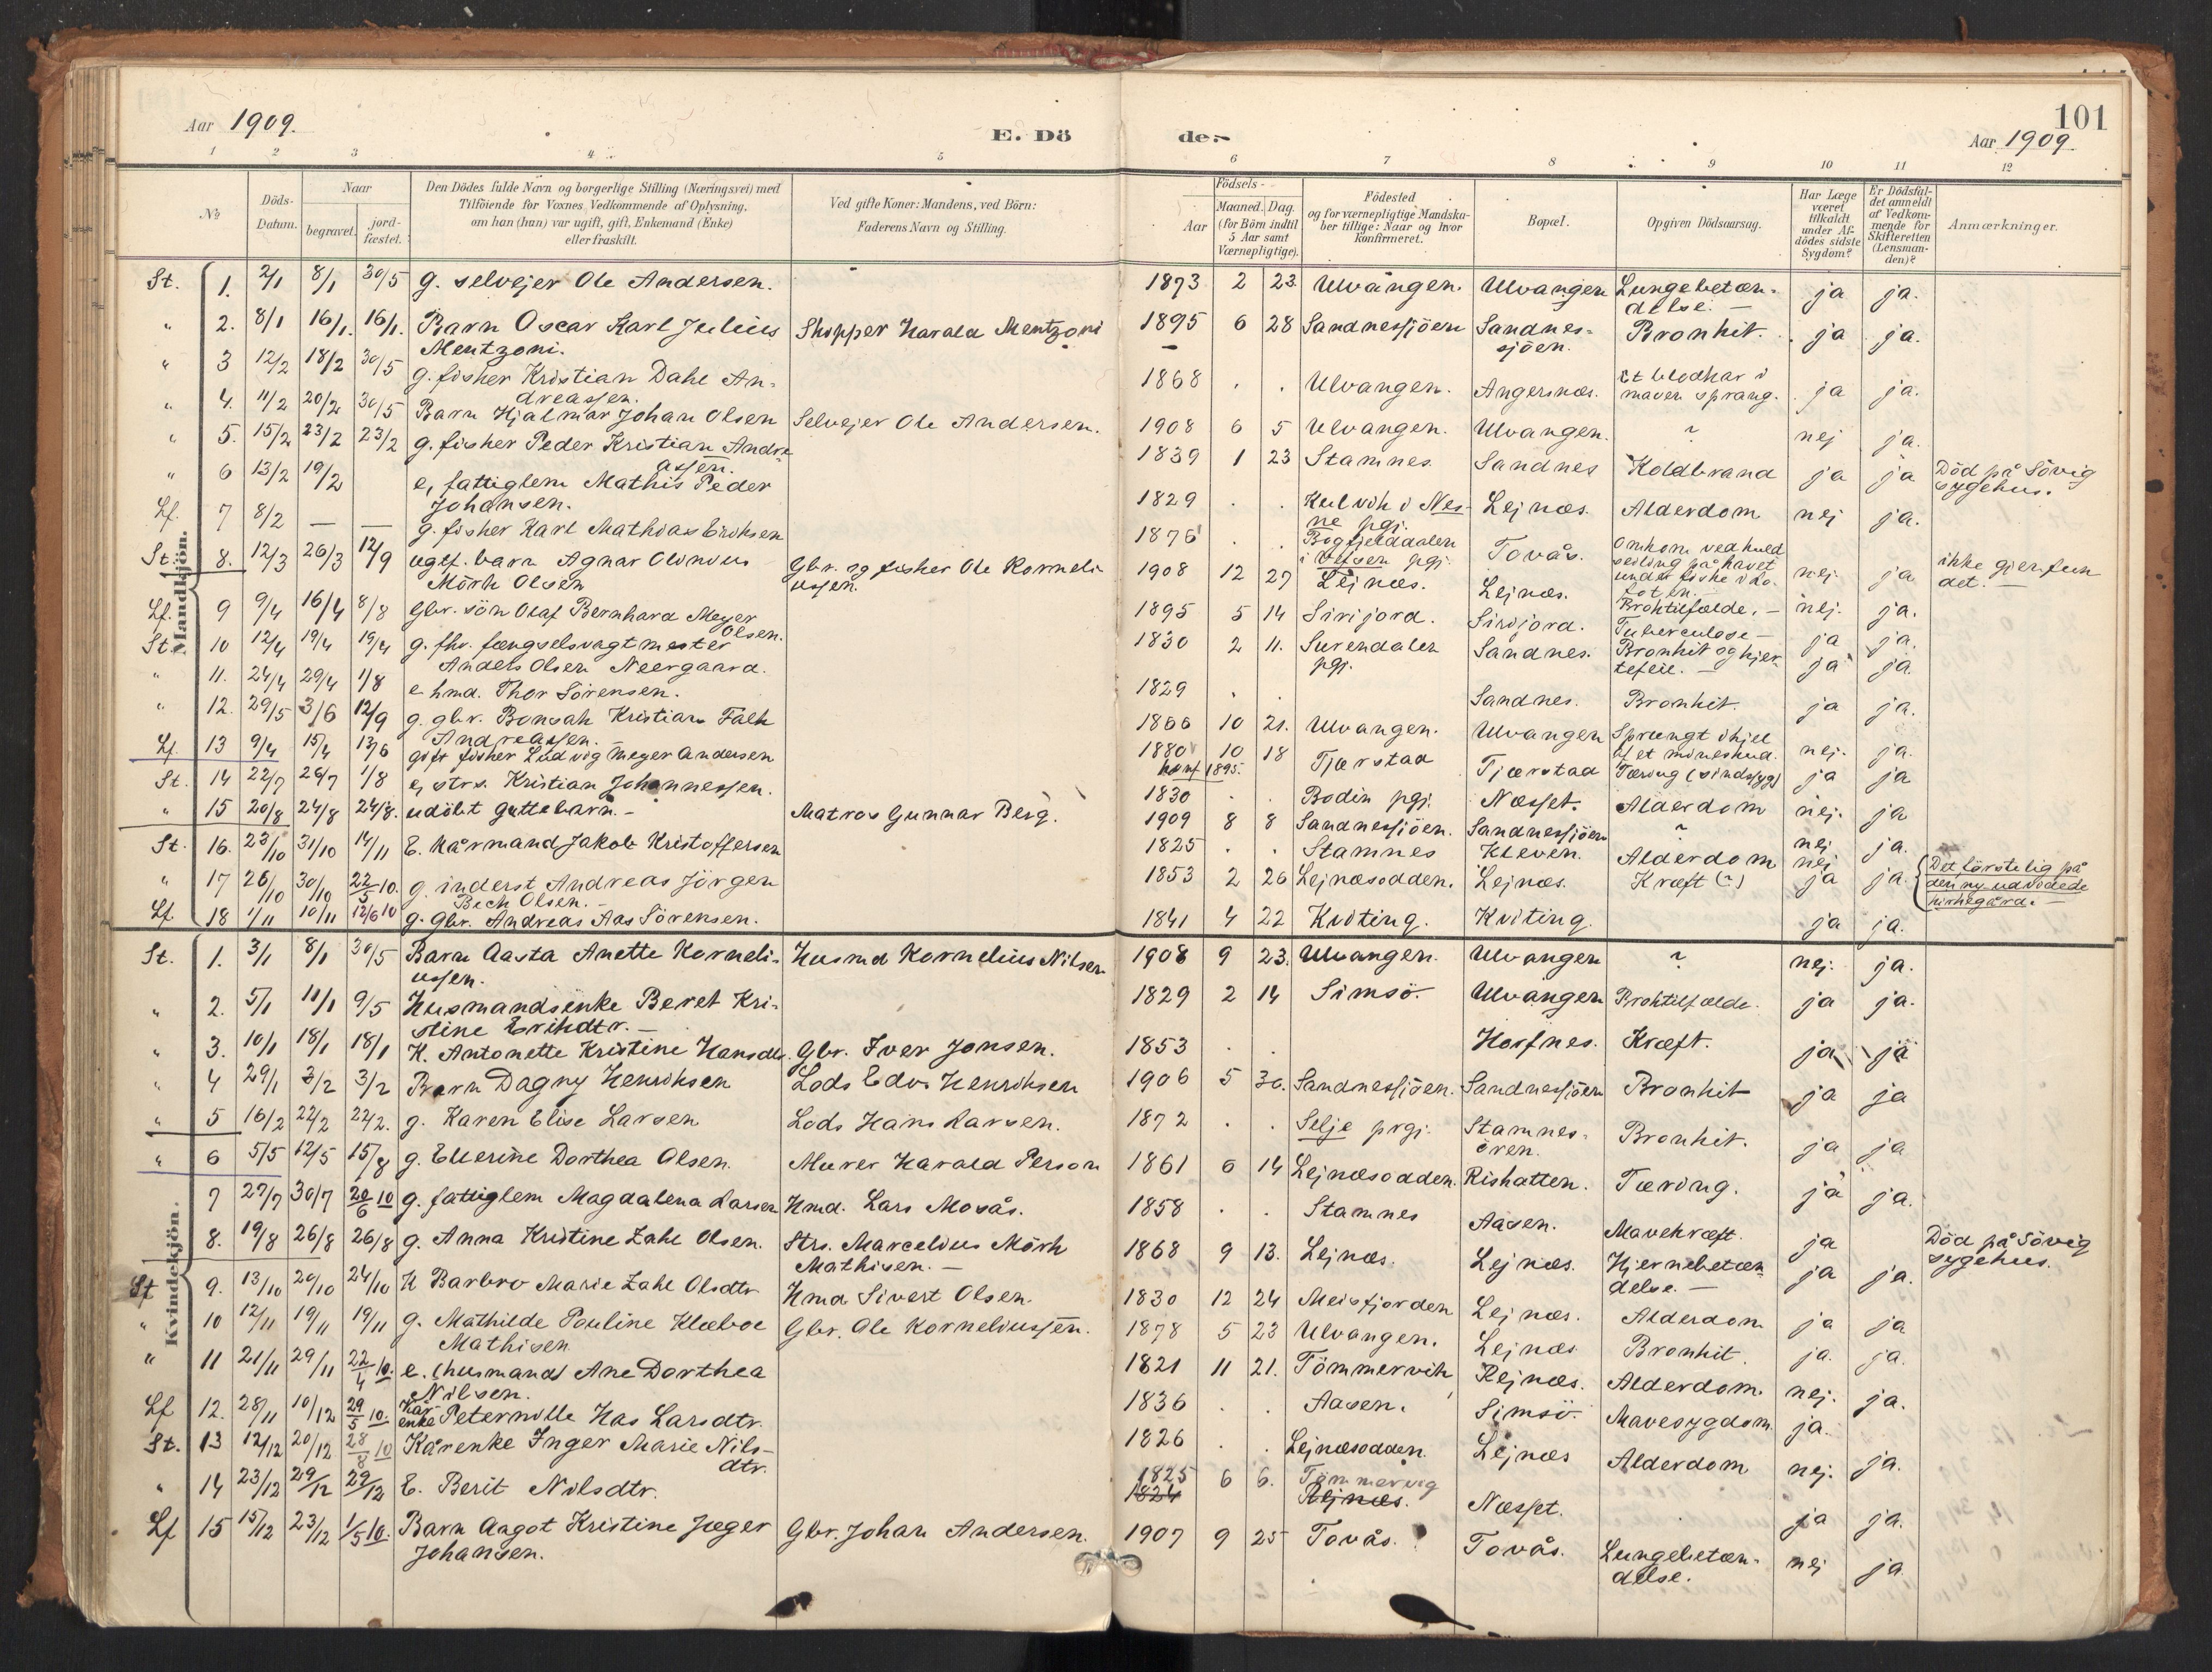 101
Aar 1909.
E. Dö
de:-
Aar 1909.
1 2 3 4 5 6 7 8 9 10 11 12
No
Döds-Datum.
Naar
begravet.
jord-fæstet.
Den Dödes fulde Navn og borgerlige Stilling (Næringsvei) med
Tilföiende for Voxnes Vedkommende af Oplysning,
om han (han) var ugift, gift, Enkemand (Enke)
eller fraskilt.
Ved gifte Koner: Mandens, ved Börn:
Faderens Navn og Stilling.
Födsels-
Aar
Maaned. Dag.
(for Börn indtil
5 Aar samt
Værnepligtige).
Födested
og for værnepligtige Mandska-
ber tillige: Naar og hvor
konfirmeret.
Bopæl.
Opgiven Dödsaarsag.
Har Læge
været
tilkaldt
under Af-
dödes sidste
Sygdom?
Er Dödsfal-
det anmeldt
af Vedkom-
mende for
Skifteretten
(Lensman-
den)?
Anmærkninger.
Mandkjön.
St. 1. 2/1 8/1 30/5 g. selvejer Ole Andersen. 1873 2 23 Ulvangen. Ulvangen Lungebetæn-
delse. ja ja.
" 2. 8/1 16/1. 16/1. Barn Oscar Karl Julius Skipper Harald Mentzoni 1895 6 28 Sandnessjöen Sandnes- Bronkit. ja ja.
Mentzoni. sjöen.
" 3 12/2 18/2 30/5 g. fisker Kristian Dahl An- 1868 . . Ulvangen. Angersnes. Et blodkar i
dreassen. maven sprang. ja ja.
" 4. 11/2 20/2 30/5 Barn Hjalmar Johan Olsen Selvejer Ole Andersen. 1908 6 5 Ulvangen. Ulvangen. ? nej ja.
" 5. 15/2 23/2 23/2 g. fisker Peder Kristian Andre- 1839 1 23 Stamnes Sandnes Koldbrand ja ja Död på Sövig
assen. sygehus.
" 6 13/2 19/2 e, fattiglem Mathis Peder 1829 . . Kulvik i Nes- Lejnæs. Alderdom nej ja.
Johansen. ne pgj.
Lf. 7 8/2 — — g. fisker Karl Mathias Eriksen 1876 . . Bogfjelddalen Tovås. Omkom ved kuld nej. ja ikke gjenfun
i Vefsen pgj. sejling på havet det.
under fiske i Lo-
foten.
St. 8. 12/3 26/3 12/9 ugf. barn Agnar Olonius Gbr. og fisker Ole Korneli- 1908 12 27 Lejnæs. Lejnæs. Broktilfælde. nej. ja.
Mörk Olsen ussen.
Lf. 9 9/4 16/4 8/8 Gbr. sön Olaf Bernhard Meyer 1895 5 14 Sirijord. Sirijord. Tuberculose ja ja.
Olsen.
St. 10 12/4 19/4 19/4 g. fhv. fængselsvagtmester 1830 2 11. Surendalen Sandnes. Bronkit og hjer- ja ja.
Anders Olsen Neergaard. pgj. tefeil.
" 11. 24/4 29/4 1/8 e hmd. Thor Sörensen. 1829 . . Sandnes. Bronkit. ja ja.
" 12. 29/5 3/6 12/9 g. gbr. Bonsak Kristian Falk 1866 10 21. Ulvangen. Ulvangen Sprungt ihjel nej. ja.
Andreassen. af et mineskud.
Lf. 13 9/4 15/4 13/6 gift fisker Ludvig Meyer Andersen 1880 10 18 Tjærstad Tjærstad Tæring (sindssyg) ja ja
konf. 1895.
St. 14 22/7 26/7 1/8 e, strs. Kristian Johannessen. 1830 . . Bodin pgj. Næsset. Alderdom nej. ja
" 15 20/8 24/8 24/8. udöbt guttebarn. Matros Gunnar Berg. 1909 8 8 Sandnessjöen. Sandnessjöen ? nej ja.
St. 16. 23/10 31/10 14/11 E. Kårmand Jakob Kristoffersen 1825 . . Stamnes Kleven. Alderdom nej
" 17 26/10 30/10 22/5 10. g. inderst Andreas Jörgen 1853 2 26 Lejnæsodden. Lejnæs. Kræft (?) ja ja. Det förste lig på
Bech Olsen. den ny udvidede
kirkegård.
Lf 18 1/11 10/11 12/6 10 g. Gbr. Andreas Aas Sörensen. 1841 4 22 Kviting. Kviting. ja ja.
Kvindekjön.
St. 1. 3/1 8/1 30/5 Barn Aasta Anette Korneli- Husmd Kornelius Nilsen 1908 9 23. Ulvangen. Ulvangen ? nej. ja.
ussen.
" 2. 5/1 11/1 9/5 Husmandsenke Beret Kri- 1829 2 14 Simsö. Ulvangen Broktilfælde. ja ja.
stine Erikdtr.
" 3. 10/1 18/1 18/1 K. Antonette Kristine Hansdtr. Gbr. Iver Jonsen. 1853 . . Horfnes. Kræft. ja ja
" 4 29/1 3/2 3/2 Barn Dagny Henriksen Lods Edv. Henriksen 1906 5 30. Sandnessjöen. Sandnessjöen Bronkit ja ja
" 5 16/2 22/2 22/2. g. Karen Elise Larsen Lods Hans Larsen. 1872 . . Selje prgj. Stamnes- Bronkit. ja ja
ören.
" 6 5/5 12/5 15/8 g. Ellerine Dorthea Olsen. Murer Harald Person 1861 6 14 Lejnæsodden. Rishatten. Tæring. ja ja.
7 27/7 30/7 20/6 10 g. fattiglem Magdalena Larsen Hmd. Lars Mosås. 1858 . . Stamnes Aasen. Mavekræft. ja Död på Sövig
sygehus.
8. 19/8 26/8 26/8 g. Anna Kristine Zahl Olsen. Strs. Marcelius Mörk 1868 9 13. Lejnæs. Lejnæs. Hjernebetæn- ja ja.
Mathisen. delse.
St 9. 13/10 20/10 24/10 K Barbro Marie Zahl Olsdtr Hmd Sivert Olsen. 1830 12 24 Meisfjorden Lejnæs. Alderdom ja ja
" 10 12/11 19/11 19/11 g. Mathilde Pauline Klæboe Gbr. Ole Korneliussen. 1878 5 23 Ulvangen. Lejnæs Bronkit. ja. ja.
Mathisen
" 11 21/11 29/11 22/4 10. e. (husmand) Ane Dorthea 1821 11 21. Tömmervik Rejnæs. Alderdom. nej. ja.
Nilsen.
Lf 12. 28/11 10/12 29/5 10. Kår-
enke Peternille Has Larsdtr. 1836 . . Aasen. Simsö. Mavesygdom. ja.
St. 13 12/12 20/12 28/8 10 Kårenke Inger Marie Nils- 1826 . . Lejnæsodden Lejnæs Alderdom nej. ja.
dtr.
" 14 23/12 29/12 29/12 E. Berit Nilsdtr. 1825 6 6. Tömmervig Næsset. ja ja.
1824 Rejnæs.
Lf 15 15/12 23/12 1/5 10. Barn Aagot Kristine Jæger Gbr. Johan Andersen. 1907 9 25 Tovås. Tovås. Lungebetæn- nej ja
Johansen. delse.